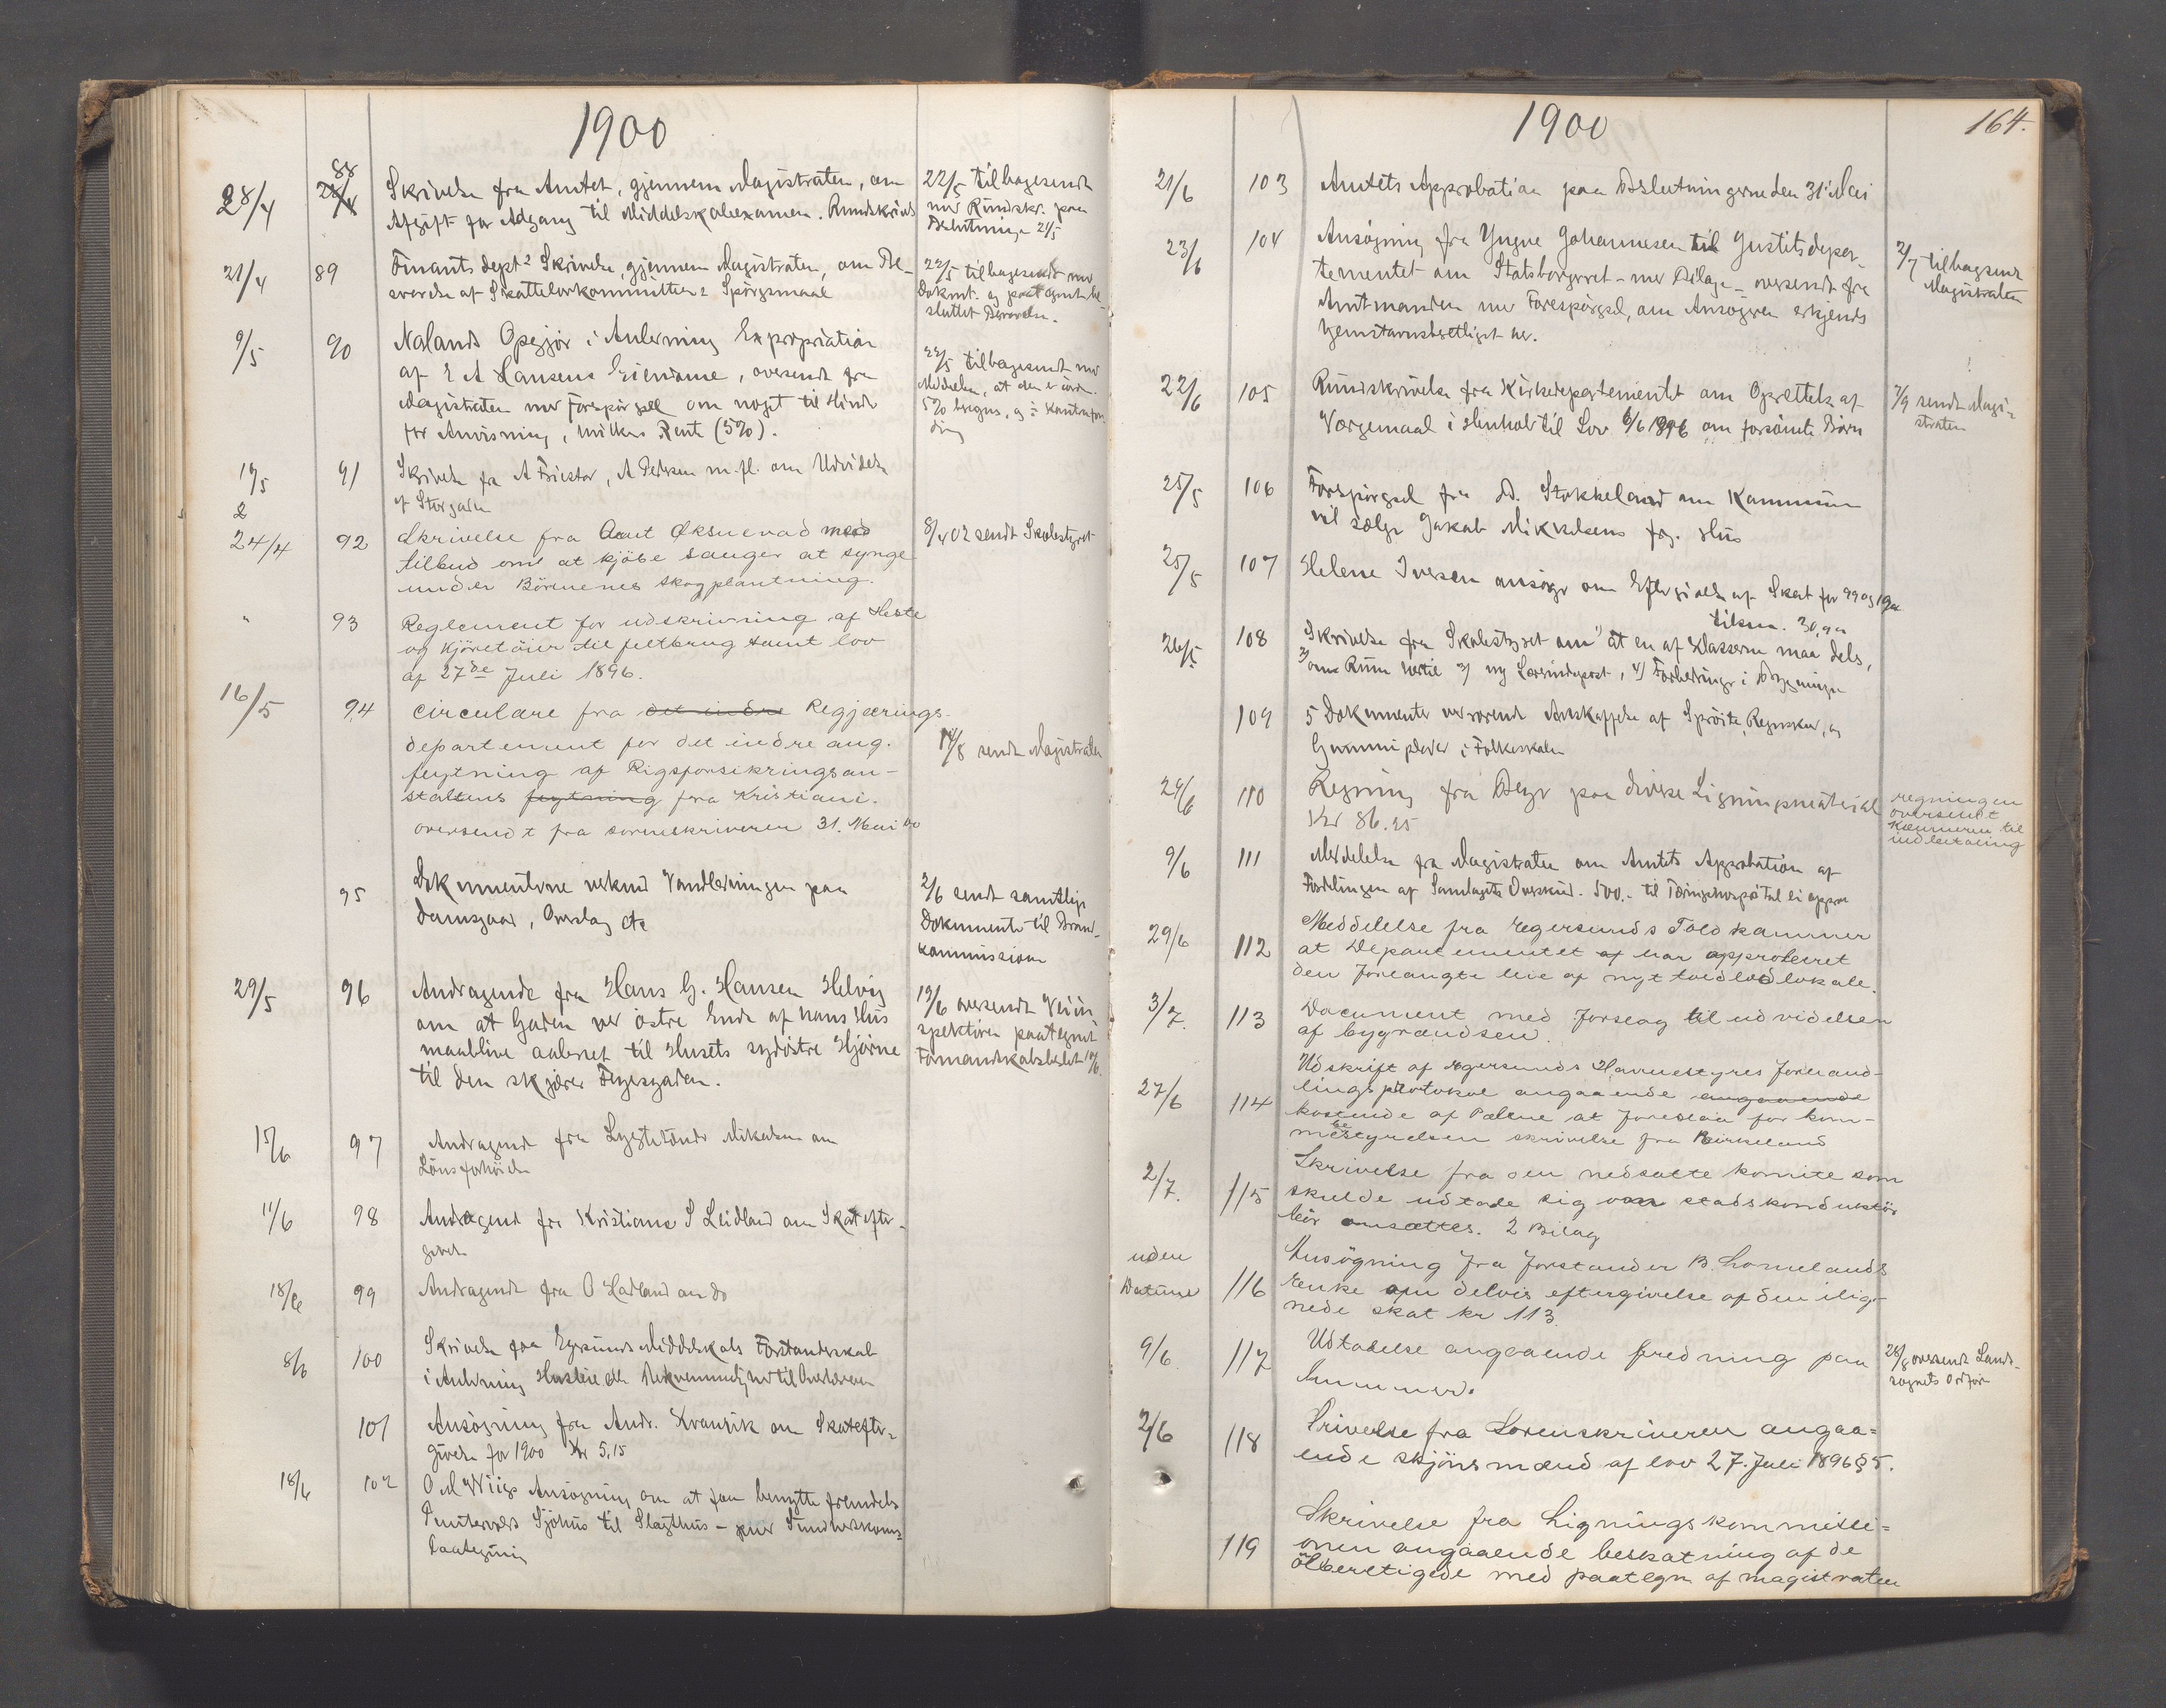 1900
28/4 88 Skrivelse fra Amtet, gjennem Magistraten, om
Afgift for Adgang til Middelskoleexamen. Rundskriv
22/5 tilbagesendt
med Rundskr. paa
Beslutning 21/5
21/4 89 Finantsdepts Skrivelse, gjennem Magistraten, om Be-
svarelse af Skattelovkommitteens Spörgsmaal
22/5 tilbagesendt med
Dokmt. og paategnet be-
sluttet Besvarelse.
9/5 90 Nalands Opgjör i Anledning Expropriation
af E A Hansens Eiendomme, oversendt fra
Magistraten med Forespörgsel om noget til Hinder
for Anvisning, hvilken Rente (5%).
22/5 tilbagesendt med
Meddelelse, at den
5% beregnes, og
19/5 91 Skrivelse fra A Friestad, A Pedersen m.fl. om Udvidelse
af Storgaden
2
24/4 92 Skrivelse fra Aent Øksnevad med
tilbud om at kjöbe sanger at synge
under Börnenes skogplantning.
8/4 02 sendt Skolestyret
" 93 Reglement for udskrivning af Heste
og Kjöretöier til feltbrug samt lov
af 27de Juli 1896.
16/5 94 Circulare fra det indre Regjærings-
departement for det indre ang.
flytning af Rigsforsikringsan-
staltens flytning fra Kristiani.
oversendt fra sorenskriveren 31. Mai 00
14/8 sendt Magistraten
95 Dokumenterne vedkmd Vandledningen paa
Damsgaard, Overslag etc
2/6 sendt samtlige
Dokumenter til Brand-
kommissionen
29/5 96 Andragende fra Hans G. Hansen Helvig
om at Gaden ved östre Ende af hans Hus
maa blive aabnet til Husets sydöstre Hjörne
til den skjærer Feyesgaden.
19/6 oversendt Veiin-
spektören paategnet
Formandskabsbeslut 18/6.
15/6 97 Andragende fra Lygtetænder Mikalsen om
Lönsforhöielse
11/6 98 Andragende fra Kristiane S Leidland om Skatefter-
givelse
18/6 99 Andragende fra O Hadland om do
8/6 100 Skrivelse fra Egersunds Middelskoles Forstanderskab
i Anledning Husleie eller til Overlæreren
101 Ansögning fra Andr. Kvansvik om Skatefter-
givelse for 1900 Kr 5,15
18/6 102 O M Wiigs Ansögning om at faa benytte fremdeles
Sjöhus til Slagthus - med Sundhedskoms
Paategning
1900
164.
21/6 103 Amtets Approbation paa Beslutningerne den 31' Mai
23/6 104 Ansögning fra Yngve Johannesen til Justitsdepar-
tementet om Statsborgerret - med Bilage - oversendt fra
Amtmanden med Forespörgsel, om Ansögeren erkjendes
hjemstavnsberettiget her.
2/7 tilbagsendt
Magistraten
22/6 105 Rundskrivelse fra Kirkedepartementet om Oprettelse af
Værgeraad i Henhold til Lov 6/6 1896 om forsömte Börn
7/9 sendt Magi-
straten
25/5 106 Forespörgsel fra D. Stokkeland om Kommunen
vil sælge Jakob Mikkelsens frg. Hus
25/5 107 Helene Iversen ansöger om Eftergivelse af Skat for 99 og 1900
tilsm. 30,90
26/5 108 Skrivelse fra Skolestyret om 1) at en af Klasserne maa deles,
2) om Rum hertil 3) ny Lærerindepost, 4) Forbedringer i Bygningen
109 5 Dokumenter vedrörende Anskaffelse af Spröite, Regnskur, og
Gummiplader i Folkeskolen
24/6 110 Regning fra Beyer paa diverse Ligningsmateriel
Kr 86.25
regningen
oversendt
Kæmneren til
indbetaling
9/6 111 Meddelelse fra Magistraten om Amtets Approbation af
Fordelingen af Samlagets Overskud. 500.- til Tæringshospital ei appro
29/6 112 Meddelelse fra Egersunds Toldkammer
at Departementet af har approberet
den forlangte leie af nyt toldbodlokale.
3/7. 113 Document med forslag til udvidelsen
af bygrændsen.
27/6 114 Udskrift af Egersunds Havnestyres forhand-
lingsprotokol angaaende angaaende
kostende af Pælene at foreslaa for kom-
mestyrelsen skrivelse fra Birkeland
2/7. 115 Skrivelse fra den nedsatte komite som
skulde udtale sig om stadskonduktör
bör ansættes. 2 Bilag
uden
Datum 116 Ansögning fra forstander B. Lomelands
Enke om delvis eftergivelse af den ilig-
nede skat kr 113.
9/6. 117 Udtalelse angaaende fredning paa
hummer.
28/8 oversendt Land-
sognets Ordför
2/6 118 Srivelse fra Sorenskriveren angaa-
ende skjönsmænd af lov 27. Juli 1896 § 5.
119 Skrivelse fra Ligningskommissi-
onen angaaende beskatning af de
ölberetigede med paategn af magistraten